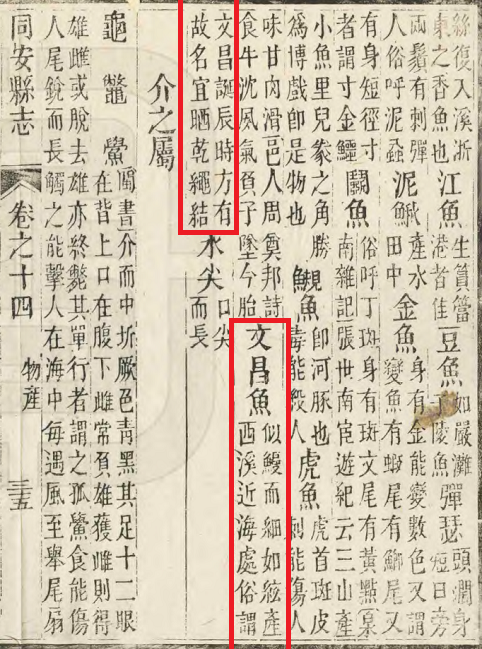 絲復入溪浙
東之香魚也
江魚
生篔簹
港者佳
豆魚
如嚴灘
子陵魚
彈瑟
頭濶身
尾短日旁
両鬚有刺彈
人俗呼泥蝨
泥鰍
產水
田中
金魚
身有金能變數色又謂
變魚有蝦尾有鯽尾又
有身短徑寸
者謂寸金鱷
鬪魚
俗呼丁斑身有斑文尾有黃黯稟
南雜記張世南宦遊紀云三山產
小魚里兒豢之角勝
為博戲卽是物也
魚
卽河豚也
毒能殺人
虎魚
虎首斑皮
刺能傷人
味甘肉滑邑人周奠邦詩
食牛沈夙氣負子墜今胎
文昌魚
似鰻而細如絲產
西溪近海處俗謂
文昌誕辰時方有
故名宜晒乾繩結
水尖
口尖
而長
介之屬
龜 鼈 鱟
閩書介而中坼厥色青黑其足十二眼
在背上口在腹下雌常負雄獲雌則得
雄雌或脫去雄亦終斃其單行者謂之孤鱟食能傷
人尾銳而長觸之能擊人在海中每遇風至舉尾扇
同安縣志 卷之十四 物產 三五